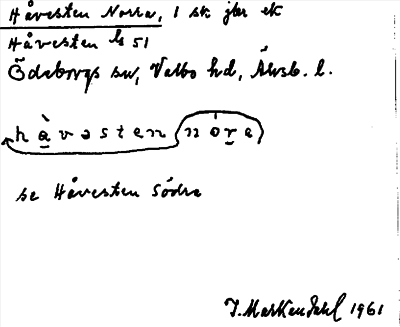 Håvesten Norra, 1 sk. jbr ek
Håvesten ls 51
Ödeborgs sn, Valbo hd, Älvsb. l.
hàvəsten nora
se Håvesten Södra
J. Markendahl 1961